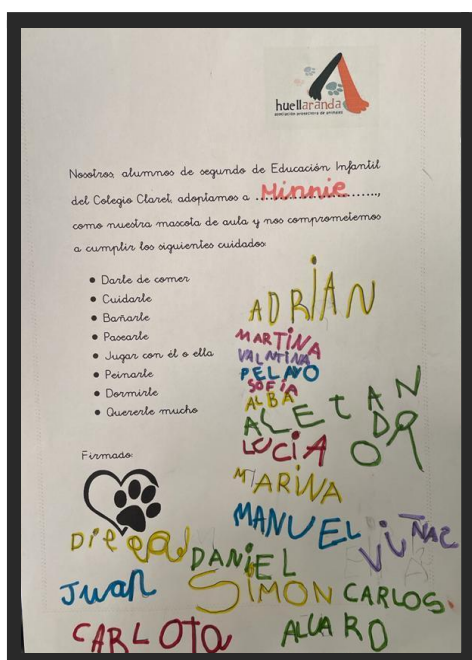 huellaranda
asociación protectora de animales
Nosotros, alumnos de segundo de Educación Infantil
del Colegio Claret, adoptamos a ...Minnie...,
como nuestra mascota de aula y nos comprometemos
a cumplir los siguientes cuidados:
• Darle de comer
• Cuidarle
• Bañarle
• Pasearle
• Jugar con él o ella
• Peinarle
• Dormirle
• Quererle mucho
ADRIÁN
MARTINA
VALNTINA
PELAYO
SOFÍA
ALBA
LUCIA
Firmado:
MARINA
MANUEL
DANIEL
Juan
SIMON
CARLOS
CARLOTA
ALVARO